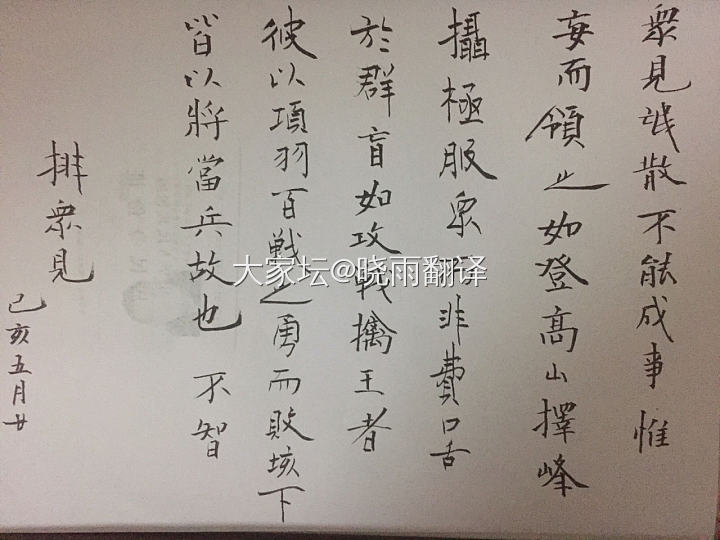 眾見誠散不能成事惟
妄而領之如登高山擇峰
攝極服眾 非費口舌
於群盲如攻戰擒王者
彼以項羽百戰之勇而敗垓下
皆以將當兵故也 不智
排眾見
己亥五月廿
大家坛@晓雨翻译